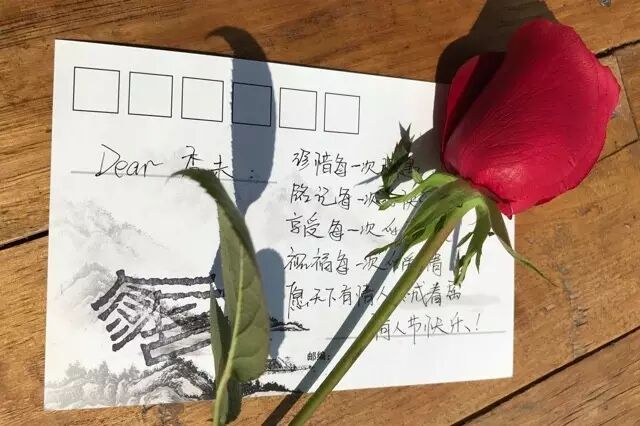 Dear 禾未:
珍惜每一次
铭记每一次
享受每一次
祝福每一次 情
愿天下有情人 成眷属
情人节快乐!
邮编: